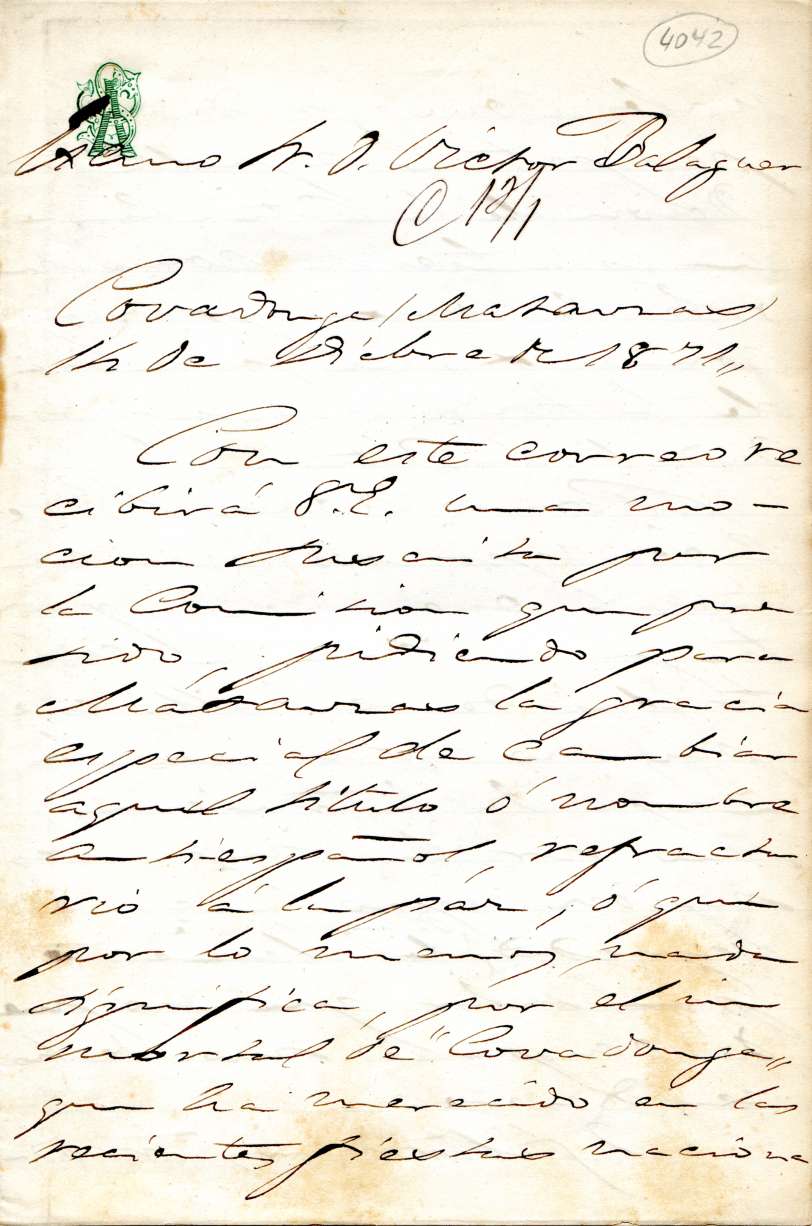 4042
Excmo Sr. D. Victor Balaguer
C 13/1
Covadonga (Matauras)
14 de Dicbre de 1871„
Con este correo re
cibirá S.E. una mo-
cion suscrita por
la Comision que pre
sido, pidiendo para
Matauras la gracia
especial de cambiar
aquel título ó nombre
anti-español, refracta
rio á la par, ó que
por lo menos nada
significa, por el in
mortal de "Covadonga„
que ha merecido en las
recientes fiestas naciona